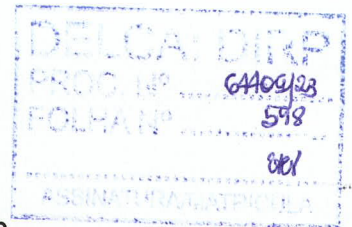 DELCA: DIRP
PROC. Nº 64409/23
FOLHA Nº 598
ASSINATURA/MATRÍCULA